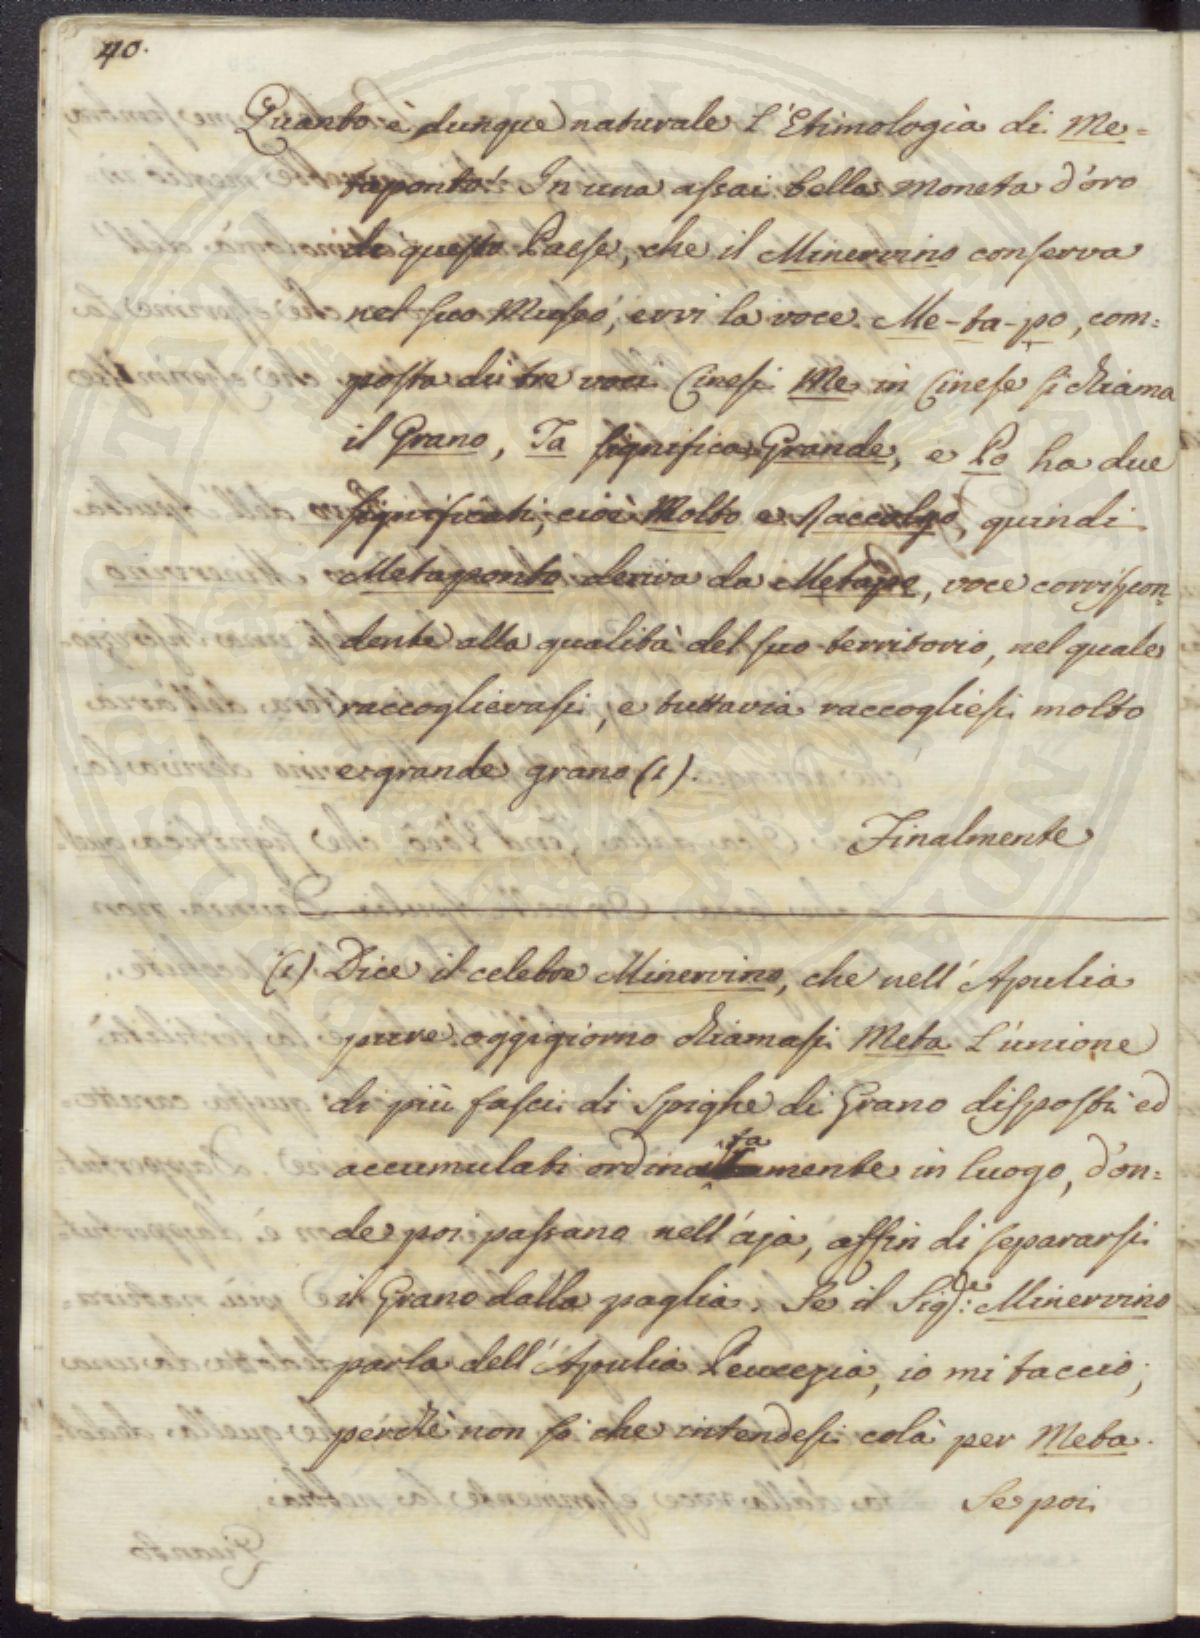 40.
Quanto è dunque naturale l'Etimologia di Me=
taponto! In una assai bella moneta d'oro
di questo Paese, che il Minervino conserva
nel suo Museo, evvi la voce Me-ta-po, com=
posta di tre voci Cinesi. Me in Cinese si chiama
il Grano, Ta significa Grande, e Po ha due
significati, cioè Molto e Raccolgo, quindi
Metaponto deriva da Metapo, voce corrispon=
dente alla qualità del suo territorio, nel quale
raccoglievasi, e tuttavia raccogliesi molto
e grande grano (1).
Finalmente
(1) Dice il celebre Minervino, che nell'Apulia
pure oggigiorno chiamasi Meta l'unione
di più fasci di Spighe di Grano disposti ed
accumulati ordinatamente in luogo, d'on=
de poi passano nell'aja, affin di separarsi
il Grano dalla paglia. Se il Sig.r Minervino
parla dell'Apulia Peucezia, io mi taccio;
perchè non so che intendesi colà per Meta.
Se poi